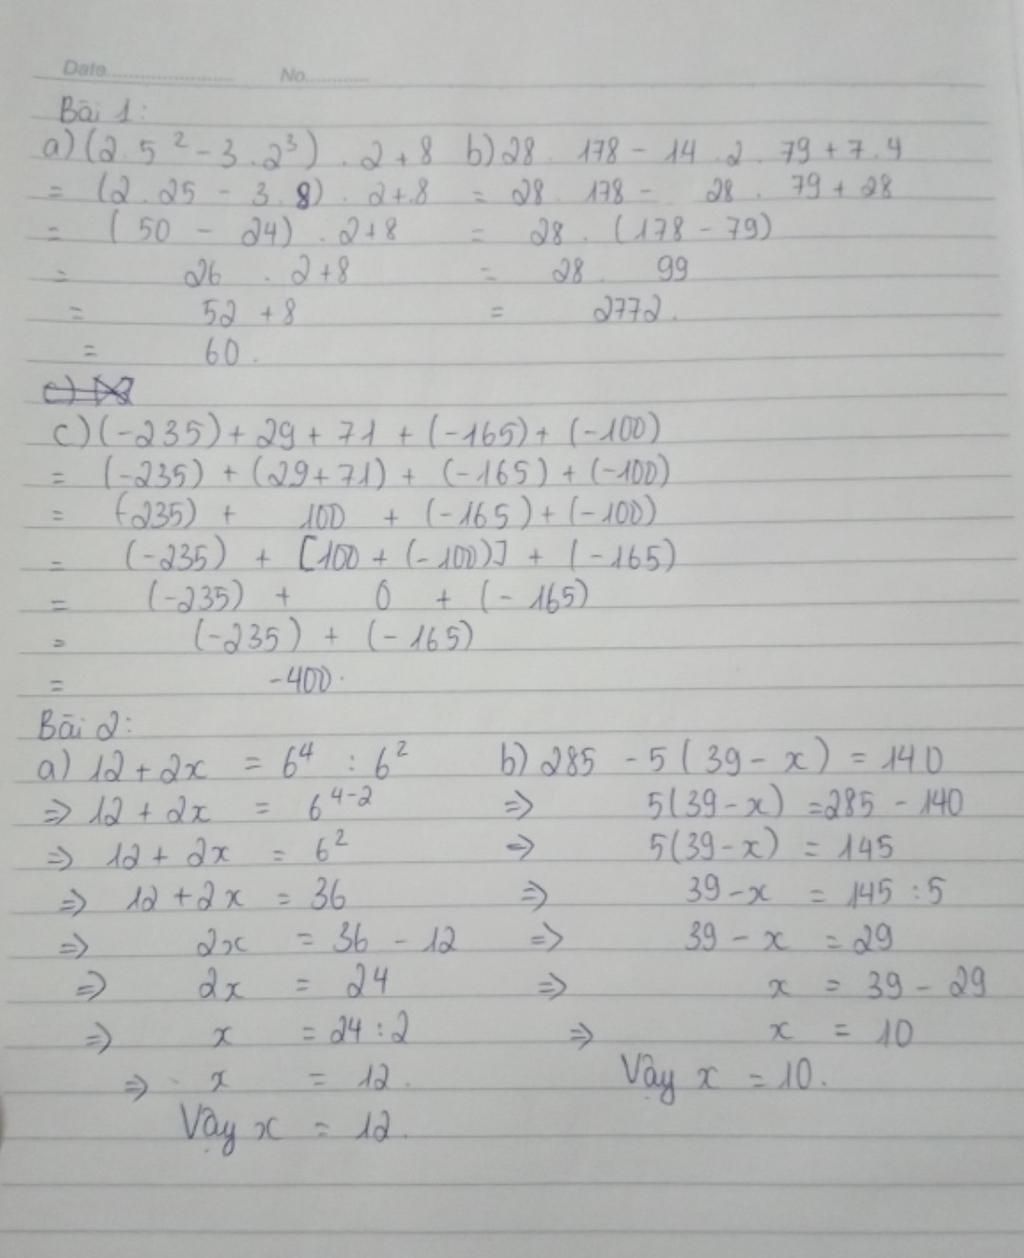 Date.................... No............
Bài 1:
a) (2.5² - 3.2³) . 2 + 8 b) 28 . 178 - 14 . 2 . 79 + 7 . 4
= (2 . 25 - 3 . 8) . 2 + 8 = 28 . 178 - 28 . 79 + 28
= (50 - 24) . 2 + 8 = 28 . (178 - 79)
= 26 . 2 + 8 = 28 . 99
= 52 + 8 = 2772.
= 60.
c) (-235) + 29 + 71 + (-165) + (-100)
= (-235) + (29 + 71) + (-165) + (-100)
= (-235) + 100 + (-165) + (-100)
= (-235) + [100 + (-100)] + (-165)
= (-235) + 0 + (-165)
= (-235) + (-165)
= -400.
Bài 2:
a) 12 + 2x = 6⁴ : 6² b) 285 - 5(39 - x) = 140
⇒ 12 + 2x = 6⁴⁻² ⇒ 5(39 - x) = 285 - 140
⇒ 12 + 2x = 6² ⇒ 5(39 - x) = 145
⇒ 12 + 2x = 36 ⇒ 39 - x = 145 : 5
⇒ 2x = 36 - 12 ⇒ 39 - x = 29
⇒ 2x = 24 ⇒ x = 39 - 29
⇒ x = 24 : 2 ⇒ x = 10
⇒ x = 12. Vậy x = 10.
Vậy x = 12.